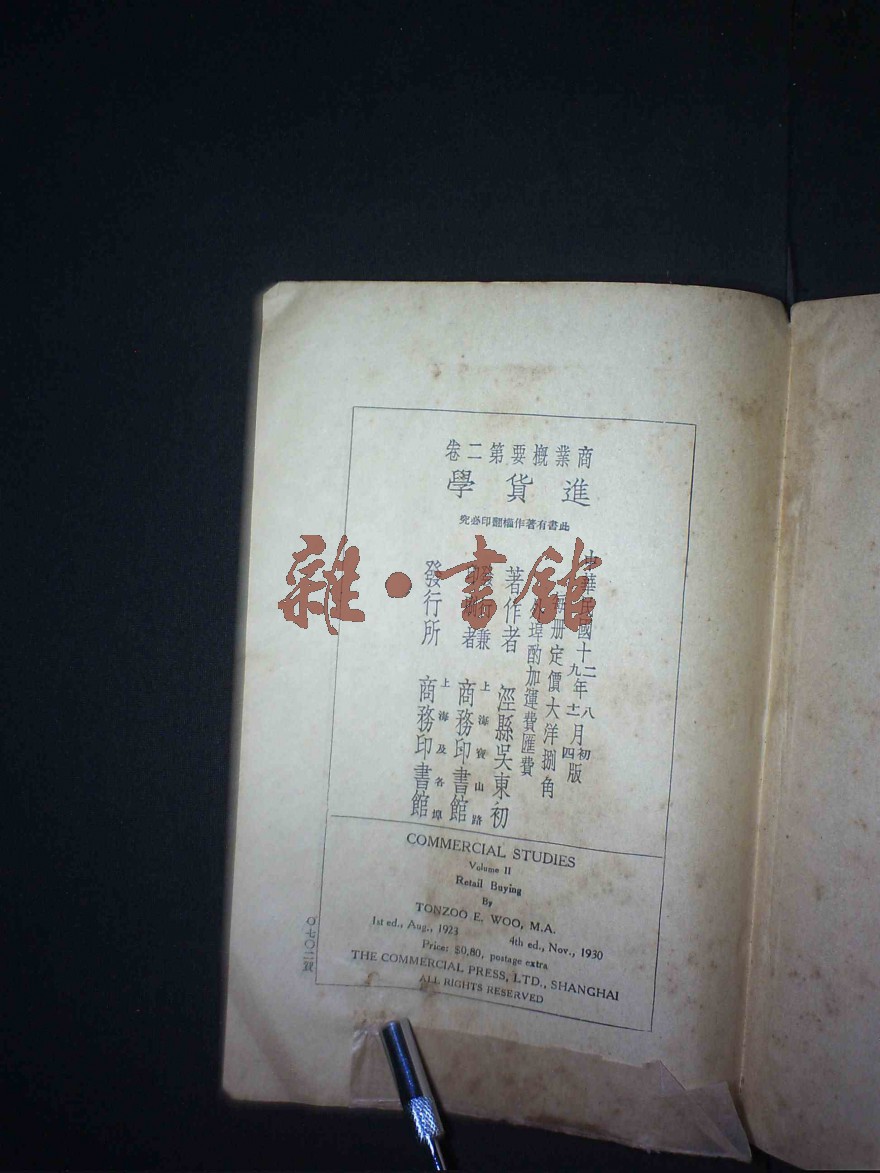 商業概要第二卷
進貨學
此書有著作權翻印必究
中華民國十二年八月初版
九年十一月四版
每冊定價大洋捌角
外埠酌加運費匯費
著作者 涇縣吳東初
發行兼印刷者 上海寶山路 商務印書館
發行所 上海及各埠 商務印書館
COMMERCIAL STUDIES
Volume II
Retail Buying
By
TONZOO E. WOO, M.A.
1st ed., Aug., 1923 4th ed., Nov., 1930
Price: $0,80, postage extra
THE COMMERCIAL PRESS, LTD., SHANGHAI
ALL RIGHTS RESERVED
〇七〇二
雜·書館